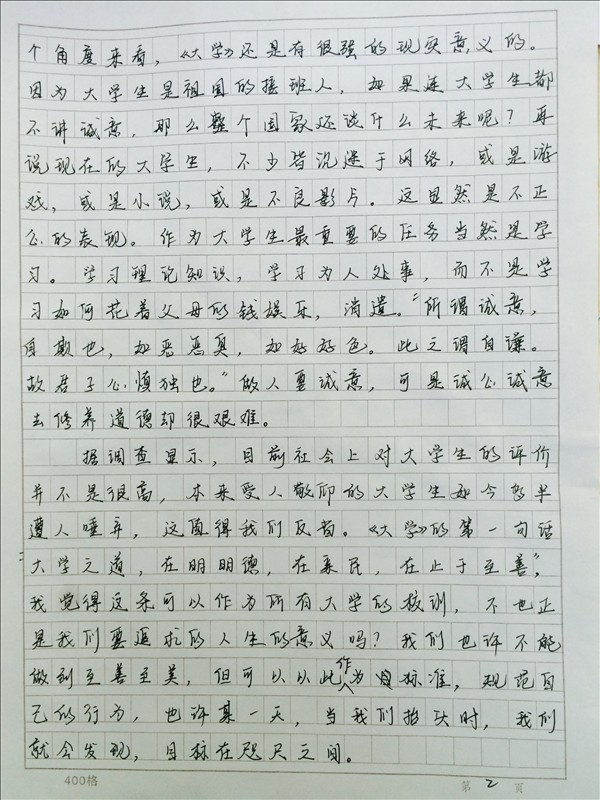 个角度来看，《大学》还是有很强的现实意义的。
因为大学生是祖国的接班人，如果连大学生都
不讲诚意，那么整个国家还谈什么未来呢？再
说现在的大学生，不少皆沉迷于网络，或是游
戏，或是小说，或是不良影片。这显然是不正
心的表现。作为大学生最重要的任务当然是学
习。学习理论知识，学习为人处事，而不是学
习如何花着父母的钱娱乐，消遣。“所谓诚意，
自欺也，如恶恶臭，如好好色。此之谓自谦。
故君子必慎独也。”做人要诚意，可是诚心诚意
去修养道德却很艰难。
据调查显示，目前社会上对大学生的评价
并不是很高，本来受人敬仰的大学生如今大半
遭人唾弃，这值得我们反省。《大学》的第一句话
“大学之道，在明明德，在亲民，在止于至善”，
我觉得这条可以作为所有大学的校训，不也正
是我们要追求的人生的意义吗？我们也许不能
做到至善至美，但可以以此作为标准，规范自
己的行为，也许某一天，当我们抬头时，我们
就会发现，目标在咫尺之间。
400格 第 2 页